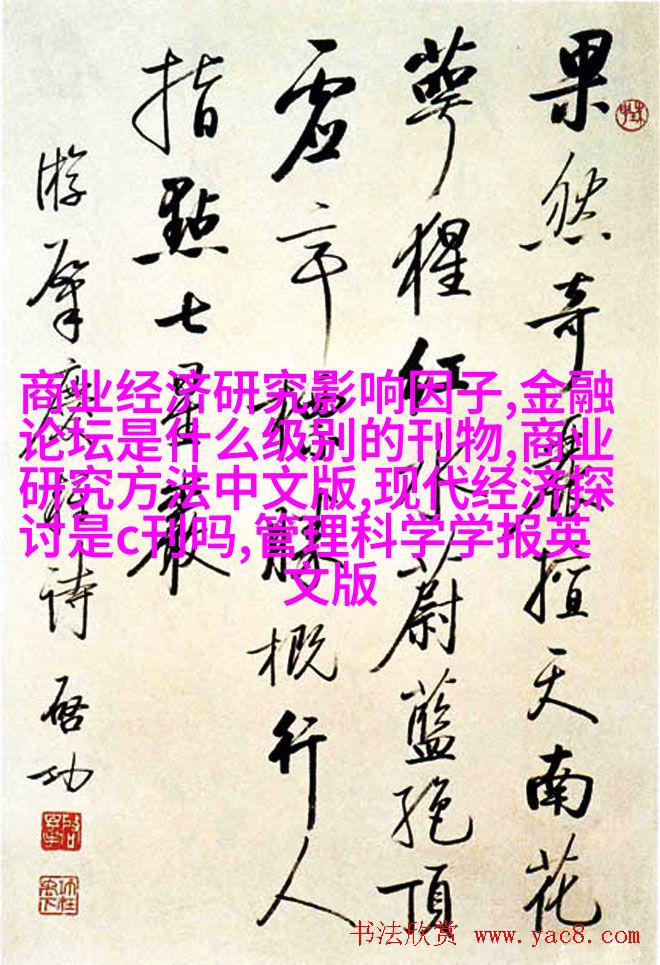 果然奇麗擅天南花
萼猩红水蔚藍絶頂
虚亭攬勝概行人
指點七星巖
游肇慶雜詩 启功
商业经济研究影响因子,金融
论坛是什么级别的刊物,商业
研究方法中文版,现代经济探
讨是c刊吗,管理科学学报英
文版
书法欣赏 www.yac8.com